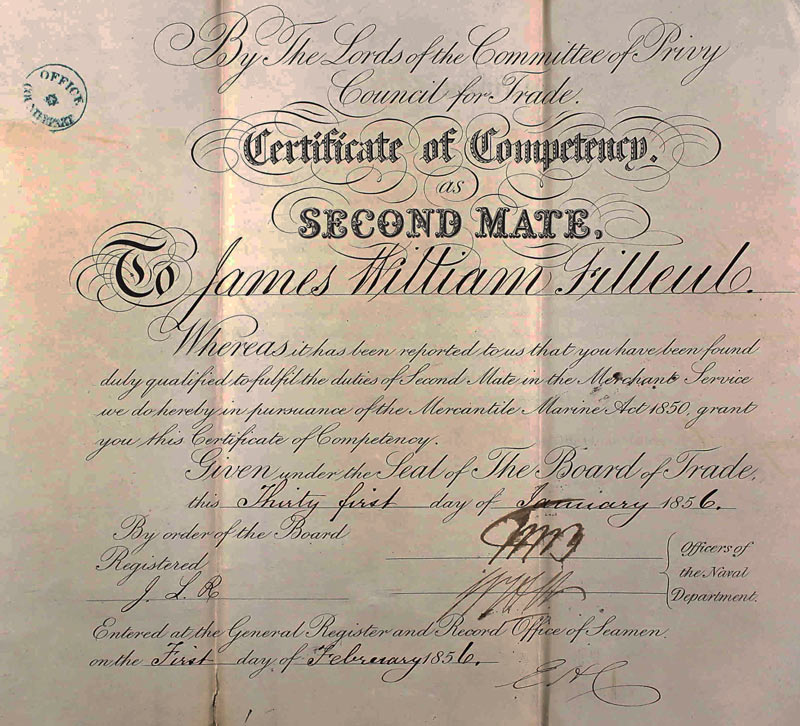 OFFICE
By The Lords of the Committee of Privy
Council for Trade.
Certificate of Competency.
as
SECOND MATE,
To James William Filleul.
Whereas it has been reported to us that you have been found
duly qualified to fulfil the duties of Second Mate in the Merchant Service
we do hereby in pursuance of the Mercantile Marine Act 1850, grant
you this Certificate of Competency.
Given under the Seal of The Board of Trade.
this Thirty first day of January 1856.
By order of the Board
Registered
J. L. R
Officers of
the Naval
Department.
Entered at the General Register and Record Office of Seamen.
on the First day of February 1856.